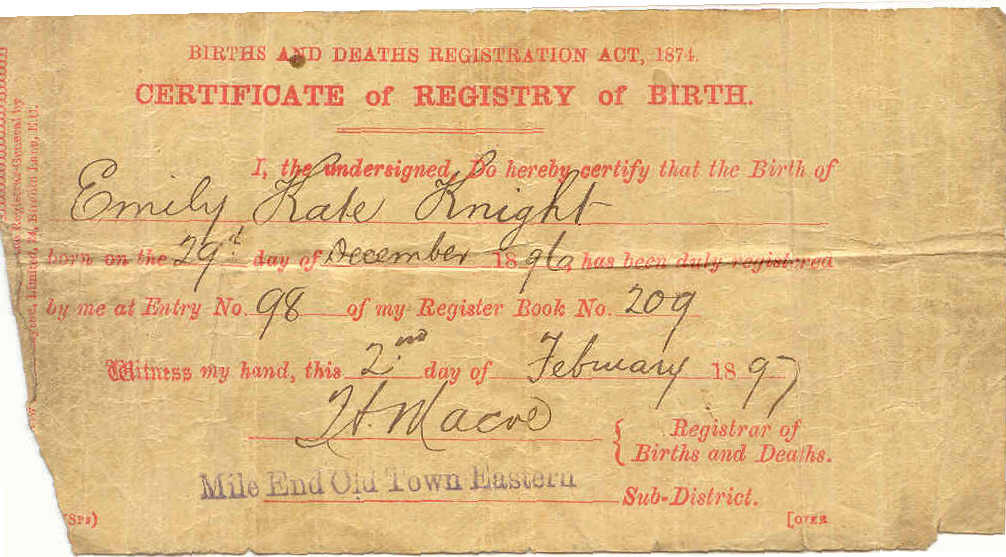 BIRTHS AND DEATHS REGISTRATION ACT, 1874.
CERTIFICATE of REGISTRY of BIRTH.
I, the undersigned, Do hereby certify that the Birth of
Emily Kate Knight
born on the 29th day of December 1896, has been duly registered
by me at Entry No. 98 of my Register Book No. 209
Witness my hand, this 2nd day of February 1897
Registrar of
Births and Deaths.
Mile End Old Town Eastern Sub-District.
[OVER